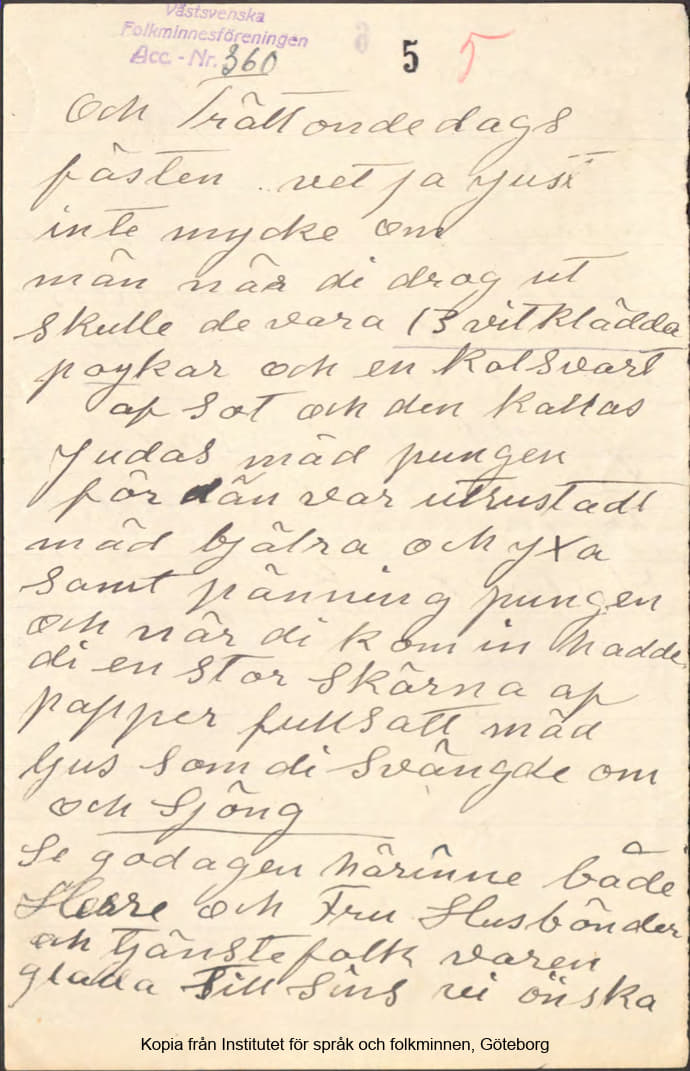 Västsvenska
Folkminnesföreningen
Acc. - Nr. 360
5 5
och Trättondedags
fästen vet ja just
inte mycke om
män när di drog ut
skulle de vara 13 vitklädda
poykar och en Kolsvart
af Sot och den kallas
Judas mäd pungen
för dän var utrustadt
mäd bjälra och yxa
samt pänning pungen
och när di kom in hadde
di en stor skärna af
papper fullsatt mäd
ljus som di svängde om
och sjöng
Se godagen härinne både
Herre och Fru Husbönder
och tjänstefolk varen
glada till sins vi önska
Kopia från Institutet för språk och folkminnen, Göteborg